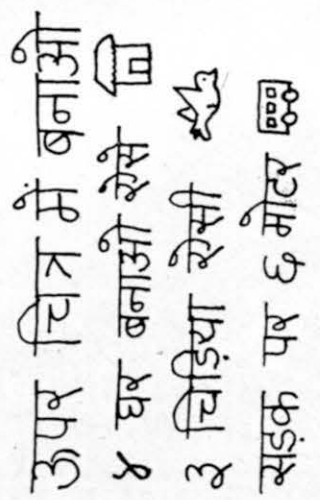 ऊपर चित्र में बनाओ
४ घर बनाओ ऐसे
३ चिड़िया ऐसी
सड़क पर ६ मोटर